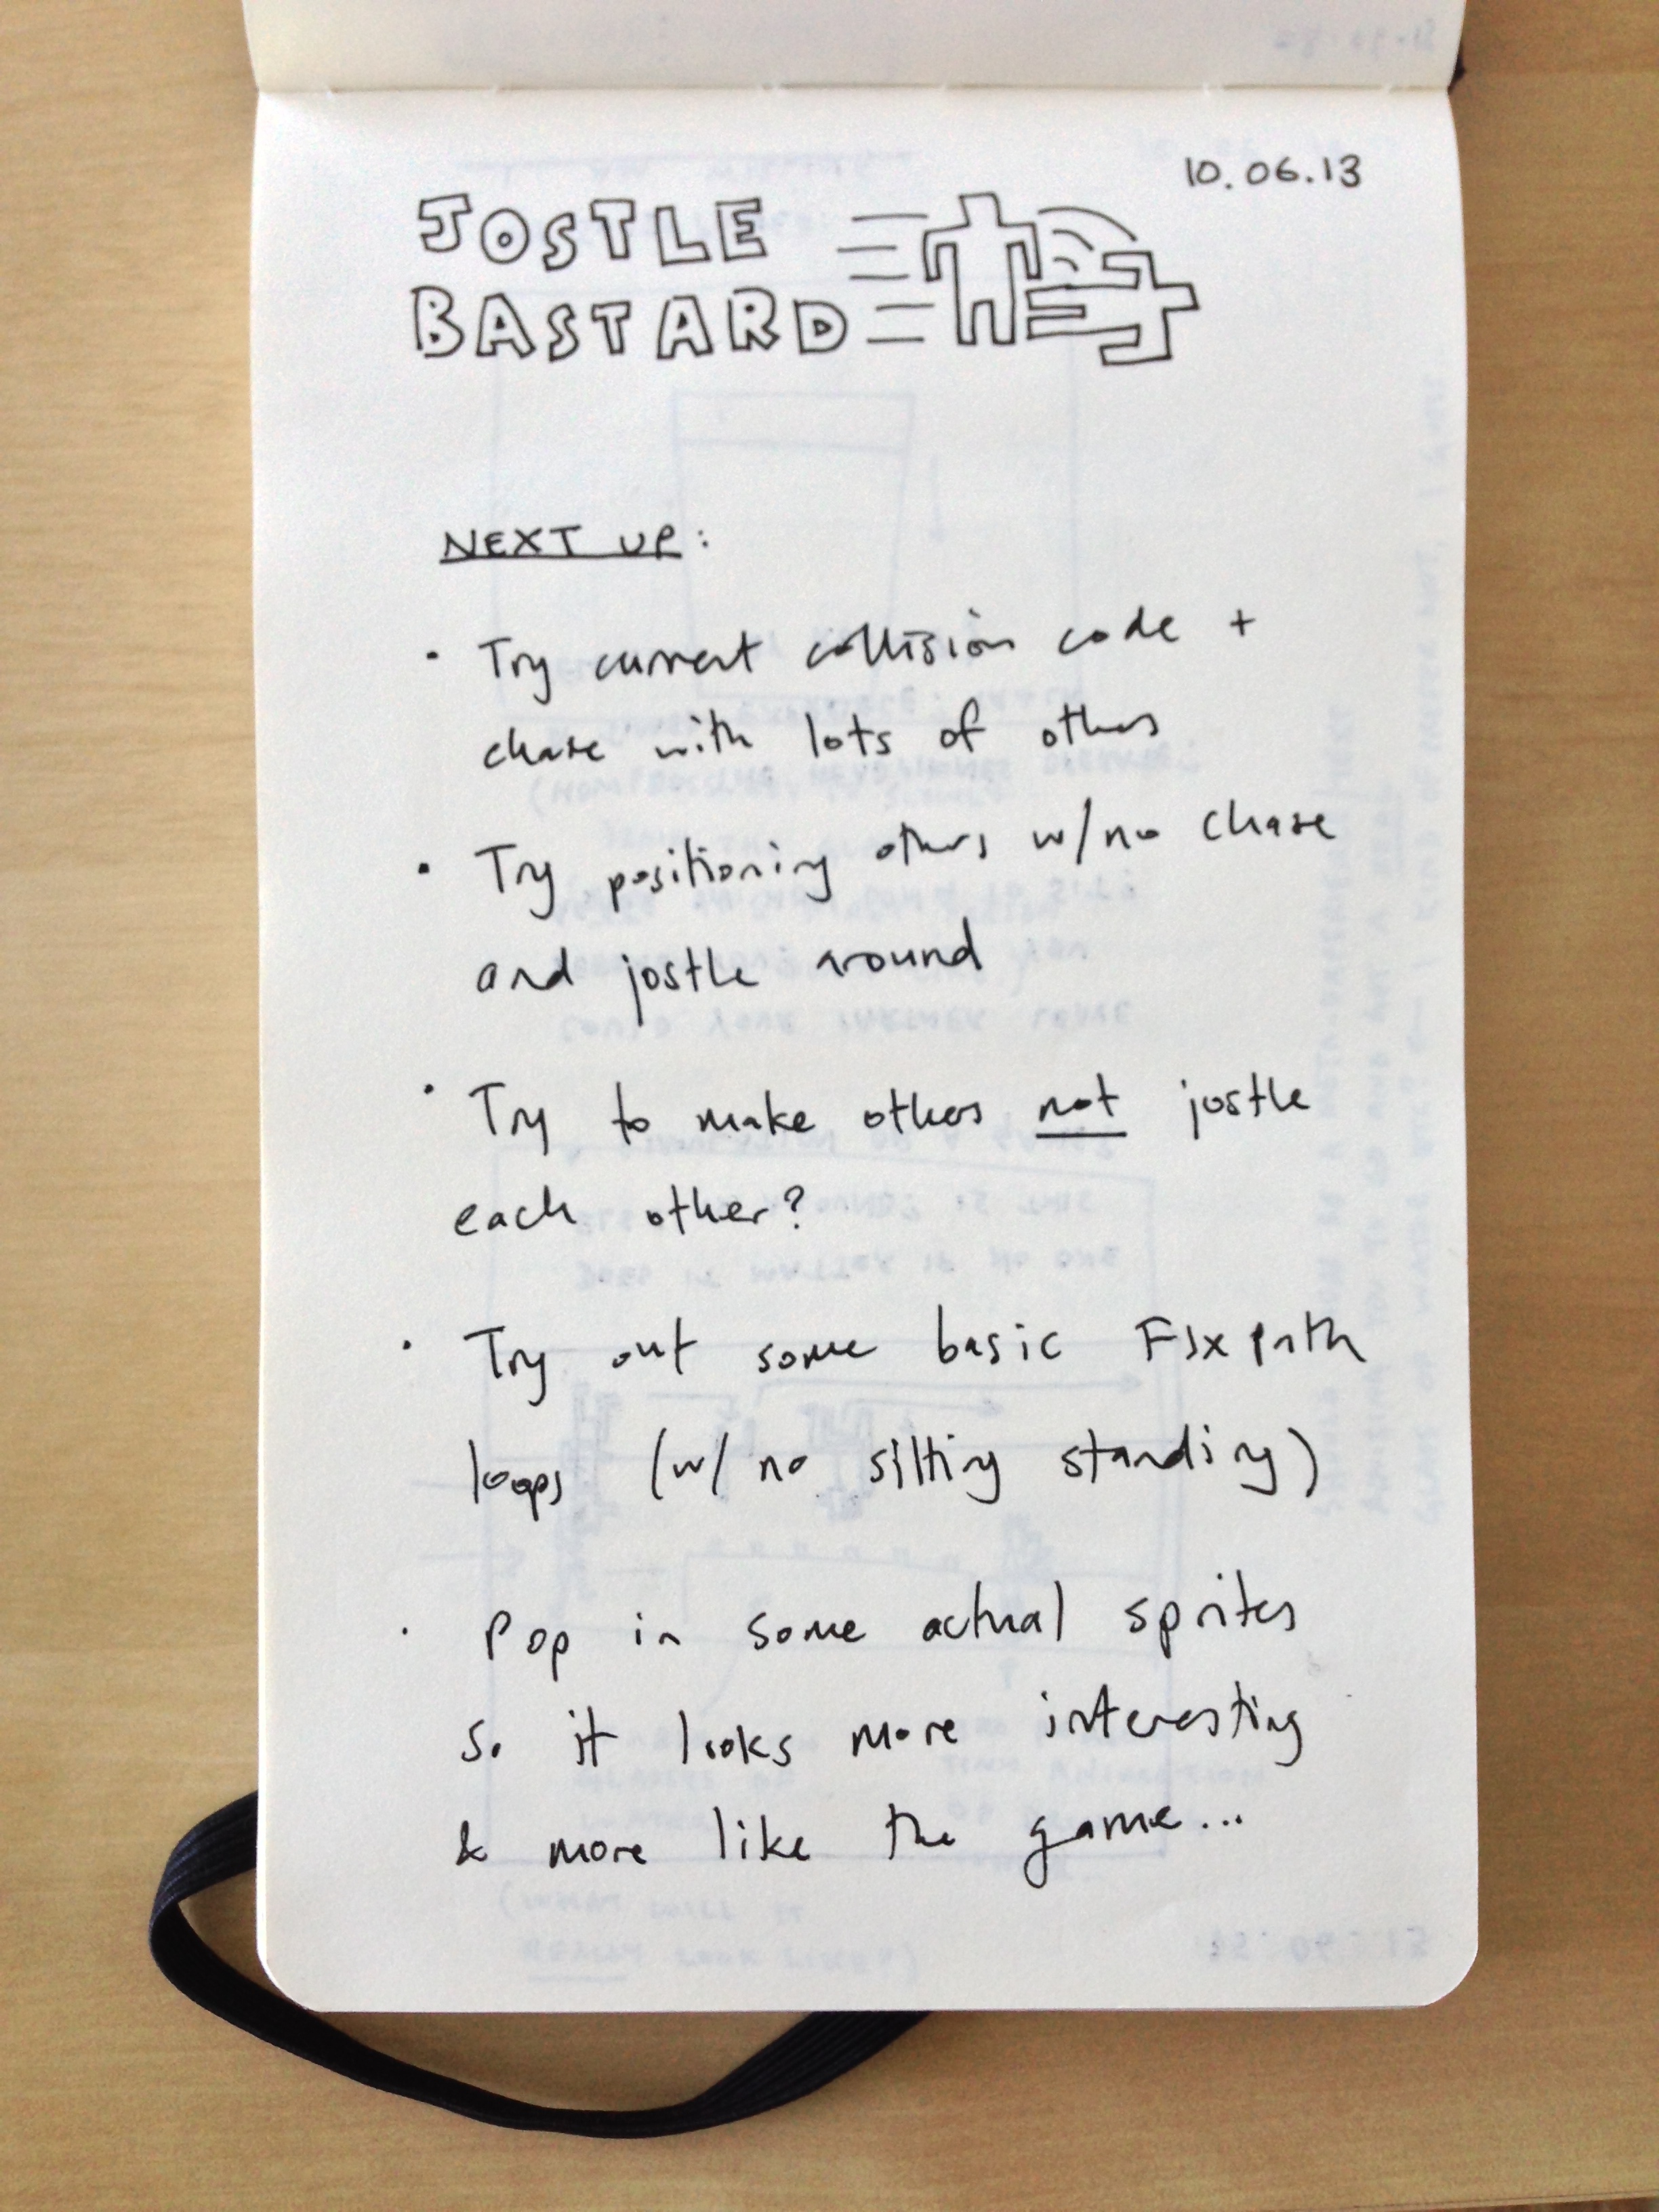 10.06.13
JOSTLE
BASTARD
NEXT UP:
· Try current collision code +
chase with lots of others
· Try positioning others w/no chase
and jostle around
· Try to make others not jostle
each other?
· Try out some basic Flxpath
loops (w/ no sitting standing)
· Pop in some actual sprites
so it looks more interesting
& more like the game...